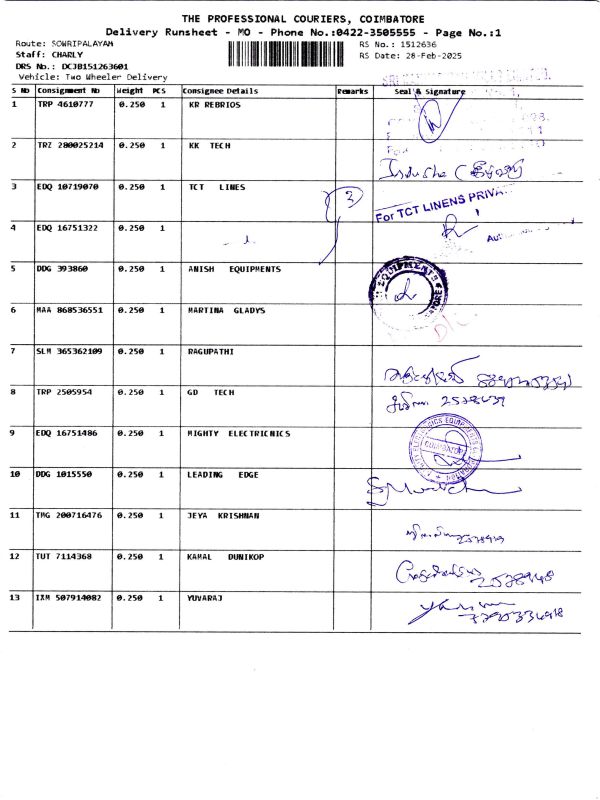 THE PROFESSIONAL COURIERS, COIMBATORE
Delivery Runsheet - MO - Phone No.:0422-3505555 - Page No.:1
Route: SOWRIPALAYAM
RS No.: 1512636
Staff: CHARLY
RS Date: 28-Feb-2025
DRS No.: DCJB151263601
Vehicle: Two Wheeler Delivery
S No Consignment No Weight PCS Consignee Details Remarks Seal & Signature
1 TRP 4610777 0.250 1 KR REBRIOS
2 TRZ 280025214 0.250 1 KK TECH
3 EDQ 10719070 0.250 1 TCT LINES 3
For TCT LINENS PRIVA
4 EDQ 16751322 0.250 1
5 DDG 393860 0.250 1 ANISH EQUIPMENTS
EQUIPMENTS
6 MAA 868536551 0.250 1 MARTINA GLADYS
7 SLM 365362109 0.250 1 RAGUPATHI
8 TRP 2505954 0.250 1 GD TECH
9 EDQ 16751486 0.250 1 MIGHTY ELECTRICNICS
COIMBATORE
10 DDG 1015550 0.250 1 LEADING EDGE
11 TMG 200716476 0.250 1 JEYA KRISHNAN
12 TUT 7114368 0.250 1 KAMAL DUNIKOP
2538948
13 IXM 507914082 0.250 1 YUVARAJ